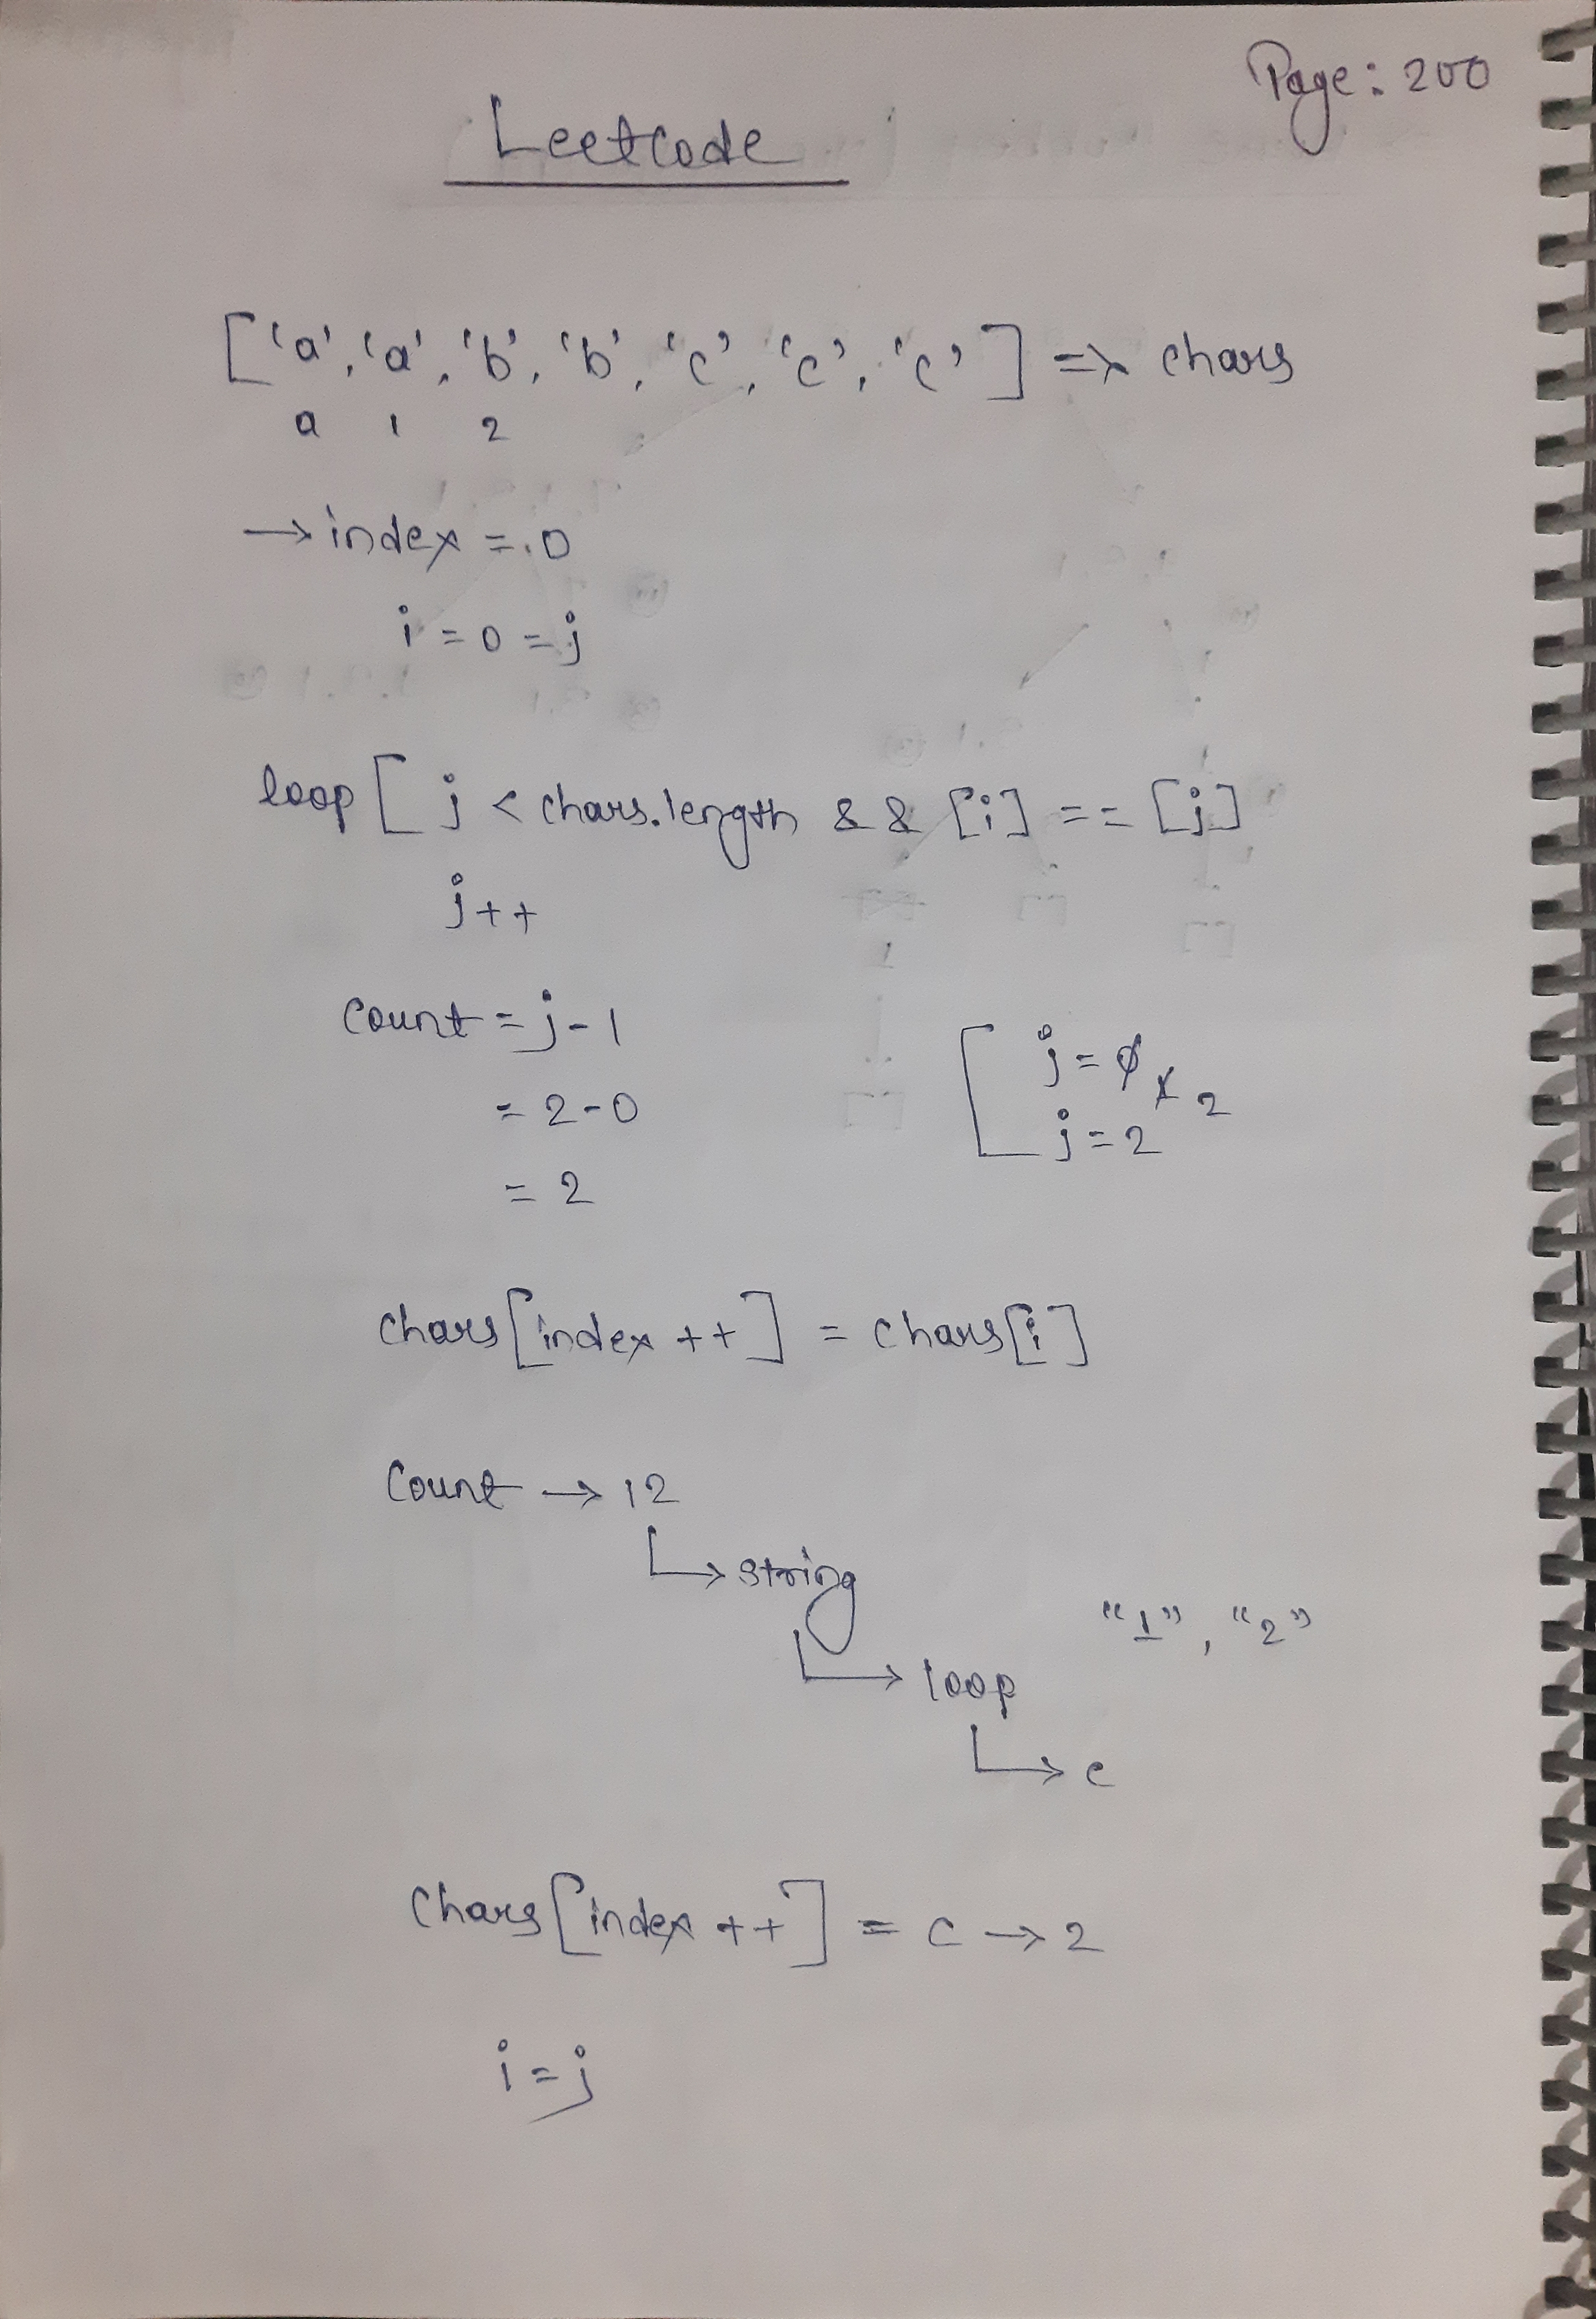 Page: 200
Leetcode
['a', 'a', 'b', 'b', 'c', 'c', 'c'] => chars
a 1 2
→ index = 0
i = 0 = j
loop [ j < chars.length && [i] == [j]
j++
Count = j - 1
= 2 - 0
= 2
j = 0 1 2
j = 2
chars[index ++] = chars[i]
Count → 12
↳ string
"1", "2"
↳ loop
↳ c
Chars[index ++] = c → 2
i = j